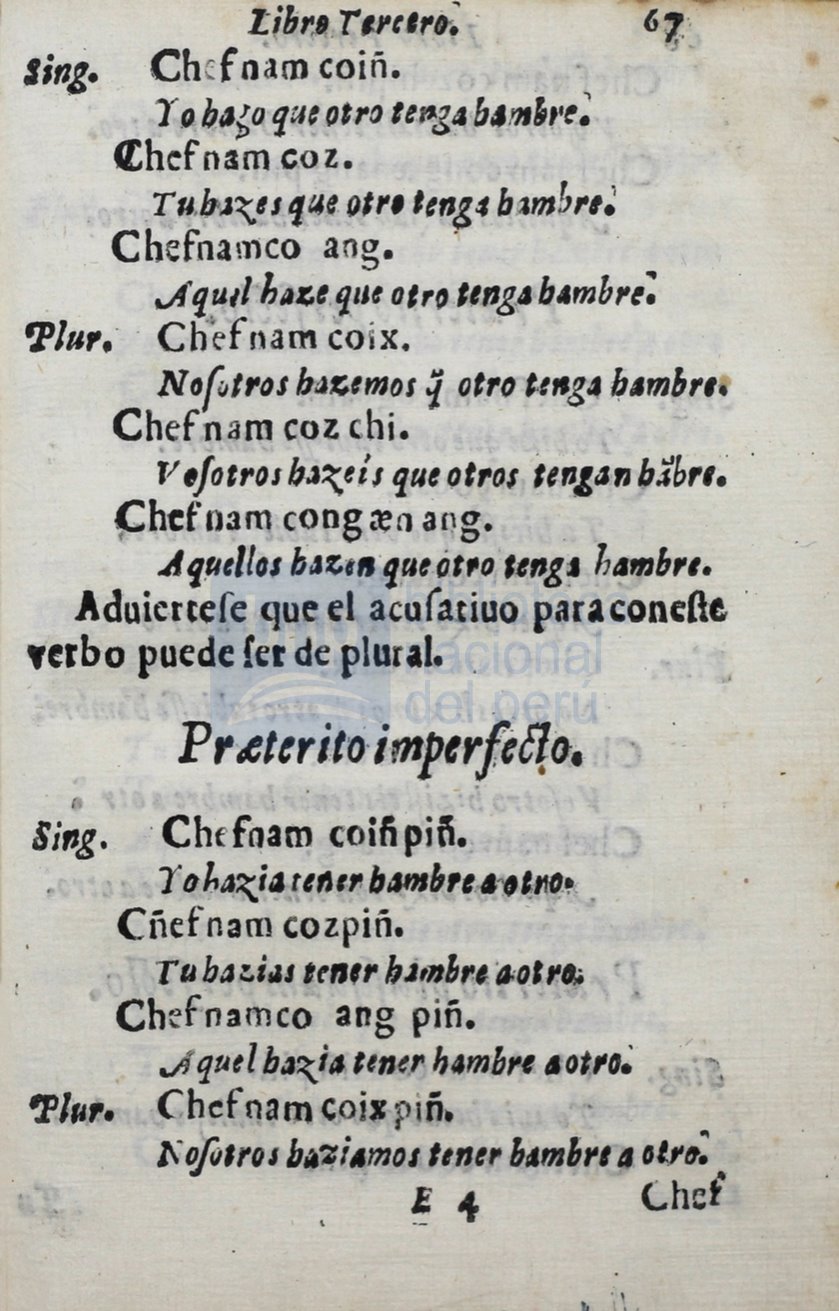 Libro Tercero. 67
Sing. Chefnam coiñ.
Yo hago que otro tenga hambre.
Chef nam coz.
Tu hazes que otro tenga hambre.
Chefnamco ang.
Aquel haze que otro tenga hambre.
Plur. Chefnam coix.
Noſotros hazemos q̃ otro tenga hambre.
Chefnam coz chi.
Veſotros hazeis que otros tengan hãbre.
Chef nam congæn ang.
Aquellos hazen que otro tenga hambre.
Aduierteſe que el acuſatiuo para coneſte
verbo puede ſer de plural.
Præterito imperfecto.
Sing. Chefnam coiñ piñ.
Yo hazia tener hambre a otro.
Cñef nam cozpiñ.
Tu hazias tener hambre a otro.
Chefnamco ang piñ.
Aquel hazia tener hambre a otro.
Plur. Chefnam coix piñ.
Noſotros haziamos tener hambre a otro.
E 4 Chef
nacional
del perú